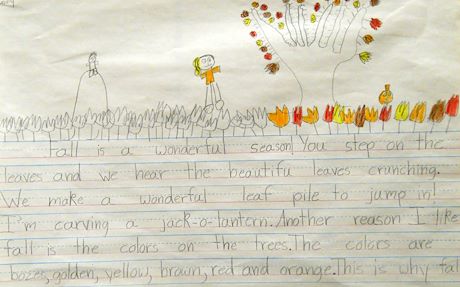 Fall is a wonderful season. You step on the
leaves and we hear the beautiful leaves crunching.
We make a wonderful leaf pile to jump in!
I'm carving a jack-o-lantern. Another reason I like
fall is the colors on the trees. The colors are
bozes, golden, yellow, brown, red and orange. This is why fal